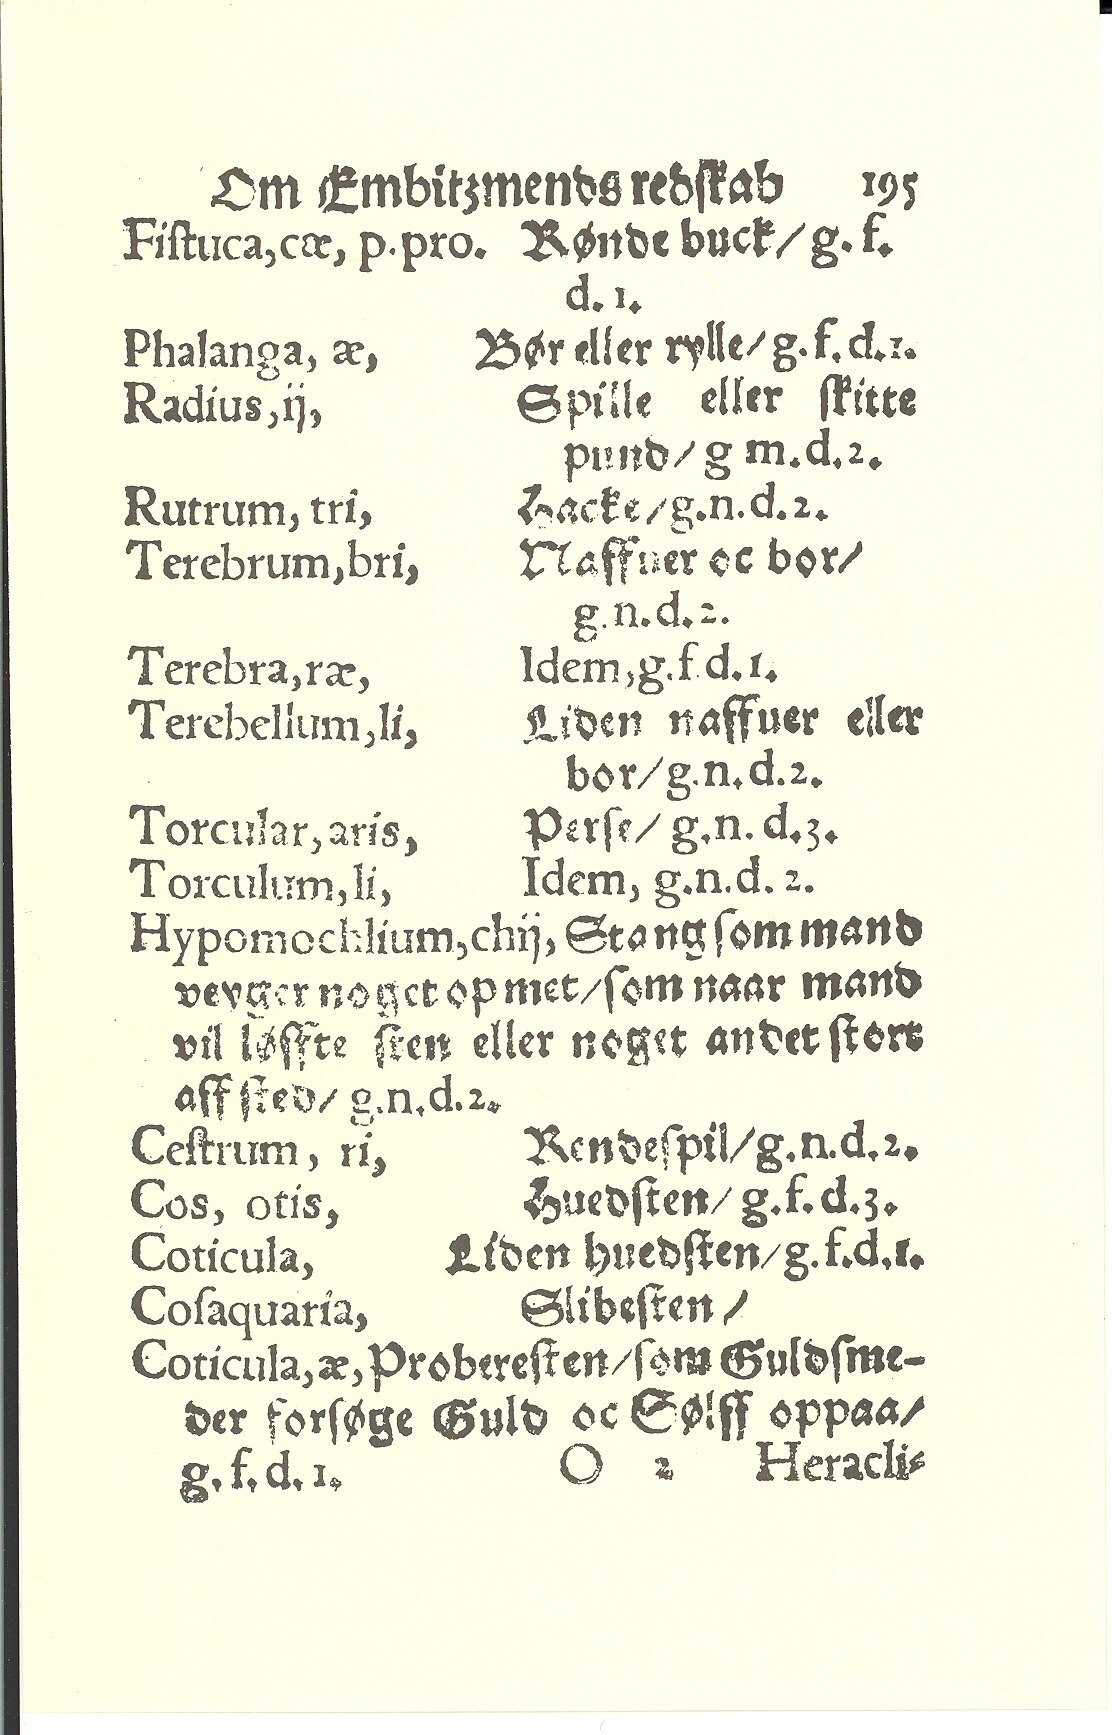 Om Embitzmends redſkab 195
Fiſtuca,cæ, p.pro. Rønde buck/g. f.
d. 1.
Phalanga, æ, Bør eller rylle/g.f.d.1.
Radius,ij, Spille eller ſkitte
pund/g m.d.2.
Rutrum, tri, Hacke/g.n.d.2.
Terebrum,bri, Naffuer oc bor/
g.n.d.2.
Terebra,ræ, Idem,g.f d.1.
Terebellum,li, Liden naffuer eller
bor/g.n.d.2.
Torcular,aris, Perſe/ g.n.d.3.
Torculum,li, Idem, g.n.d.2.
Hypomochlium,chij, Stang ſom mand
veyger noget op met/ſom naar mand
vil løffte ſten eller noget andet ſtort
aff ſted/ g.n.d.2.
Ceſtrum, ri, Rendeſpil/g.n.d.2.
Cos, otis, Huedſten/ g.f.d.3.
Coticula, Liden huedſten/g.f.d.1.
Coſaquaria, Slibeſten/
Coticula,æ,Probereſten/ſom Guldſme-
der forſøge Guld oc Sølff oppaa/
g.f.d.1. O 2 Heracli-